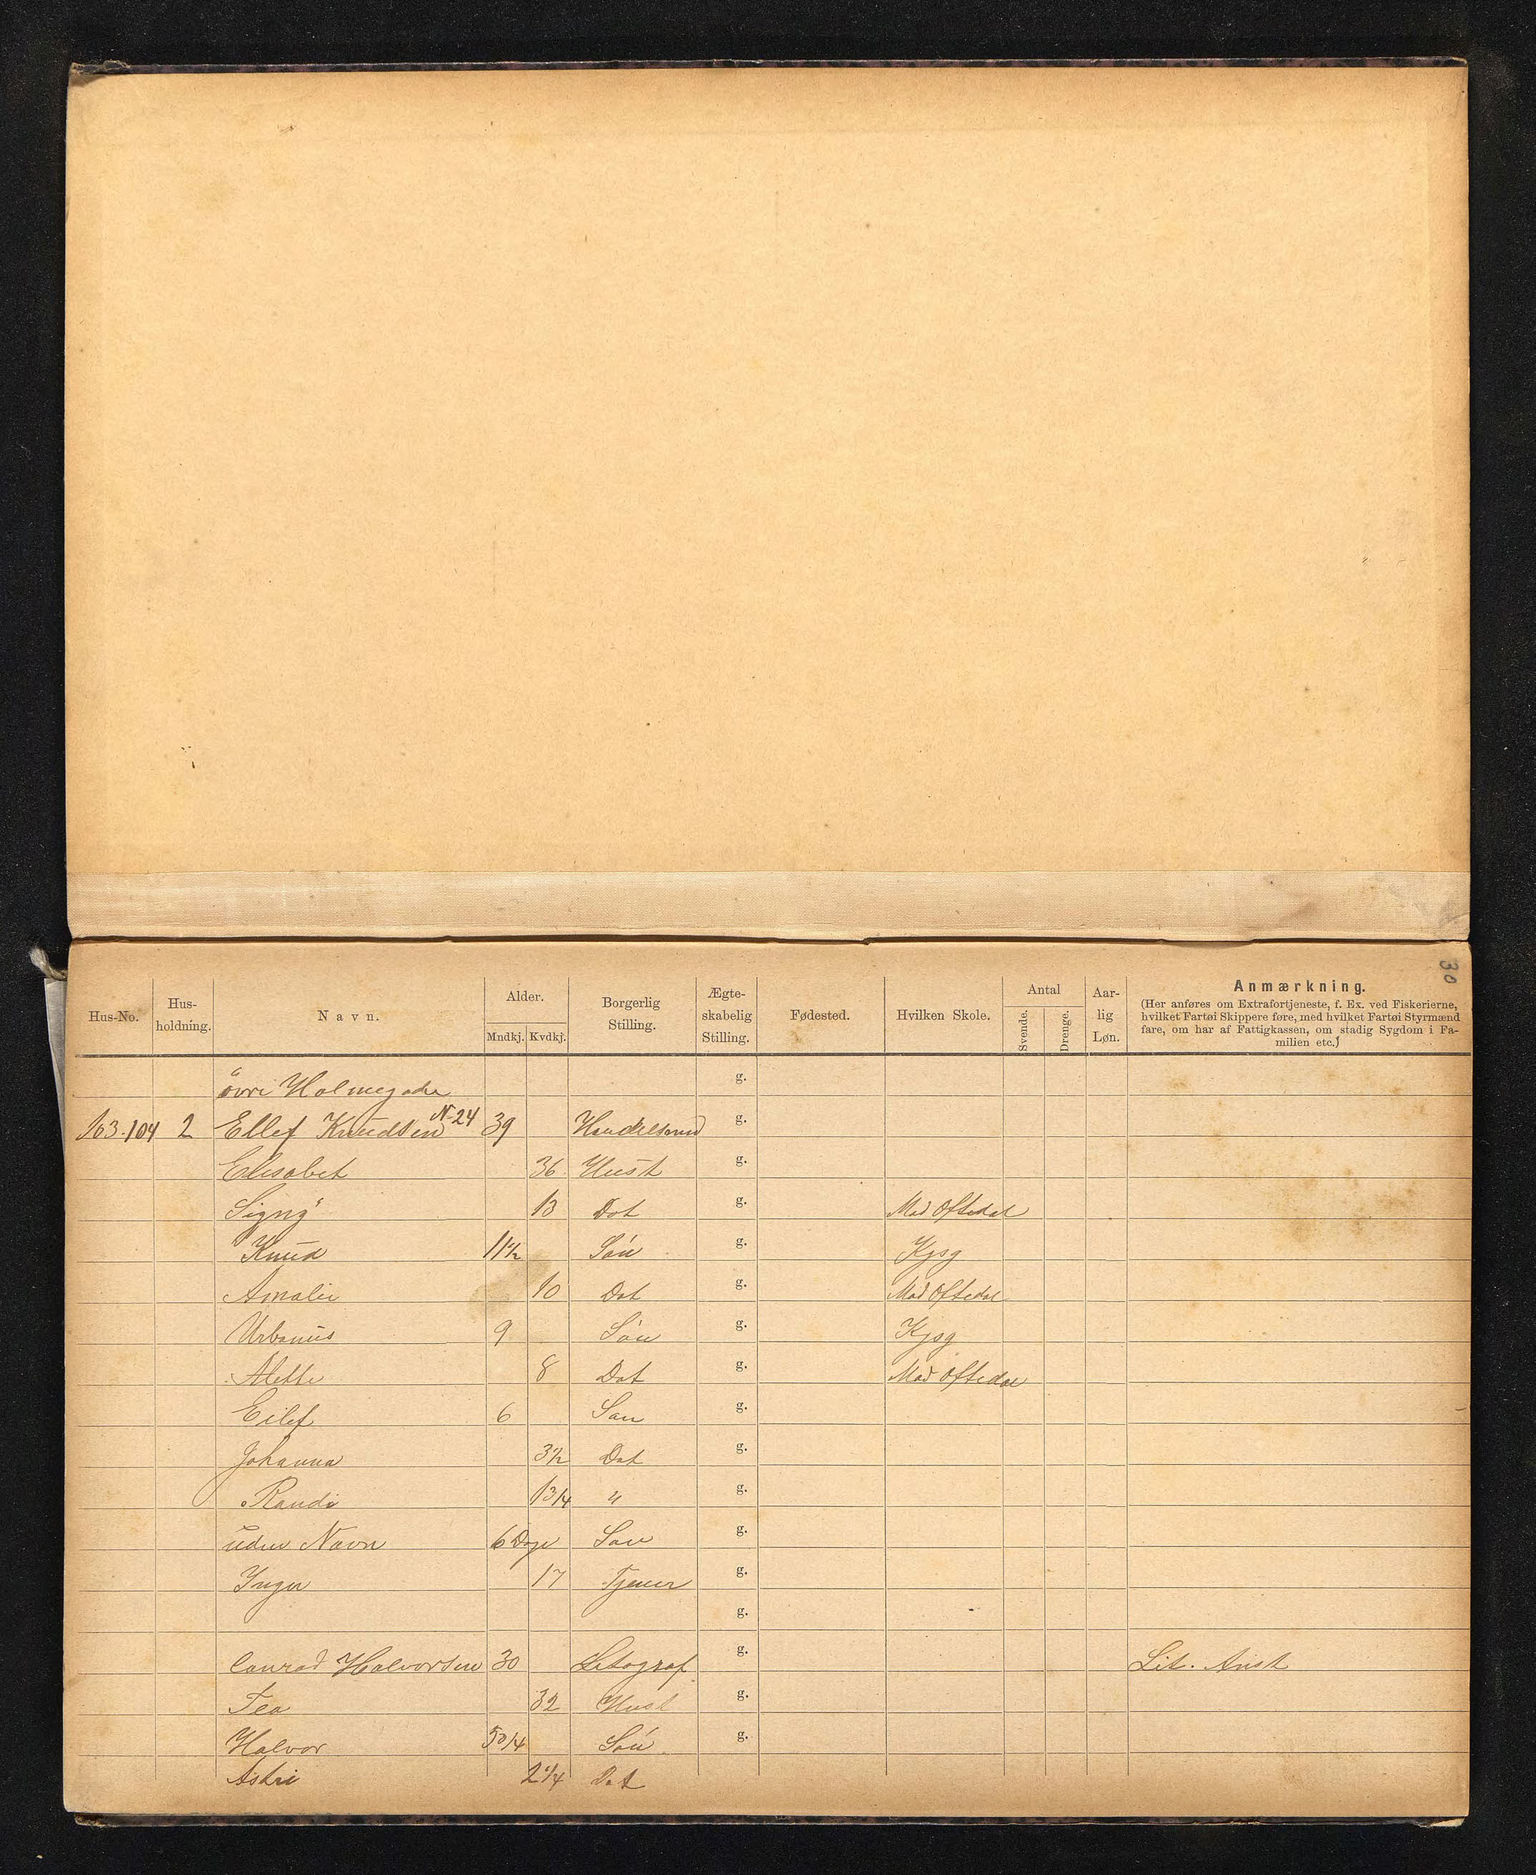 30
Hus-No. Hus-holdning. Navn. Alder. Mndkj. Kvdkj. Borgerlig Stilling. Ægte-skabelig Stilling. Fødested. Hvilken Skole. Antal Svende. Drenge. Aar-lig Løn. Anmærkning.
(Her anføres om Extrafortjeneste, f. Ex. ved Fiskerierne,
hvilket Fartøi Skippere føre, med hvilket Fartøi Styrmænd
fare, om har af Fattigkassen, om stadig Sygdom i Fa-
milien etc.)
øvre Holmegade g.
103.104 2 Ellef Knudsen N-24 39 Handelsmd g.
Elisabet 36 Hust g.
Signy 13 Dat g. Mad Oftedal
Knud 11½ Søn g. Kjsg
Amalie 10 Dat g. Mad Oftedal
Urbanus 9 Søn g. Kjsg
Mette 8 Dat g. Mad Oftedal
Eilef 6 Søn g.
Johanna 3½ Dat g.
Randi 1 3/4 " g.
uden Navn 6 Dage Søn g.
Inger 17 Tjener g.
g.
Conrad Halvorsen 30 Litograf g. Lit. Anst
Tea 32 Hust g.
Halvor 5 3/4 Søn g.
Astri 2 1/4 Dat